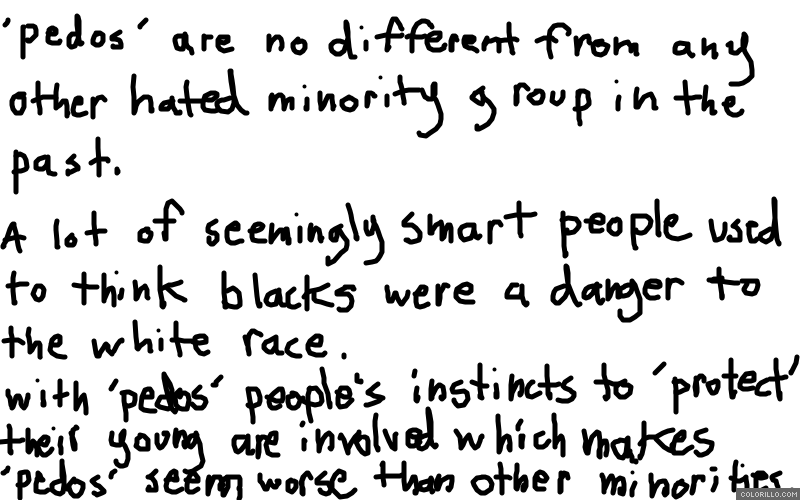 'pedos' are no different from any
other hated minority group in the
past.
A lot of seemingly smart people used
to think blacks were a danger to
the white race.
with 'pedos' people's instincts to 'protect'
their young are involved which makes
'pedos' seem worse than other minorities
COLORILLO.COM